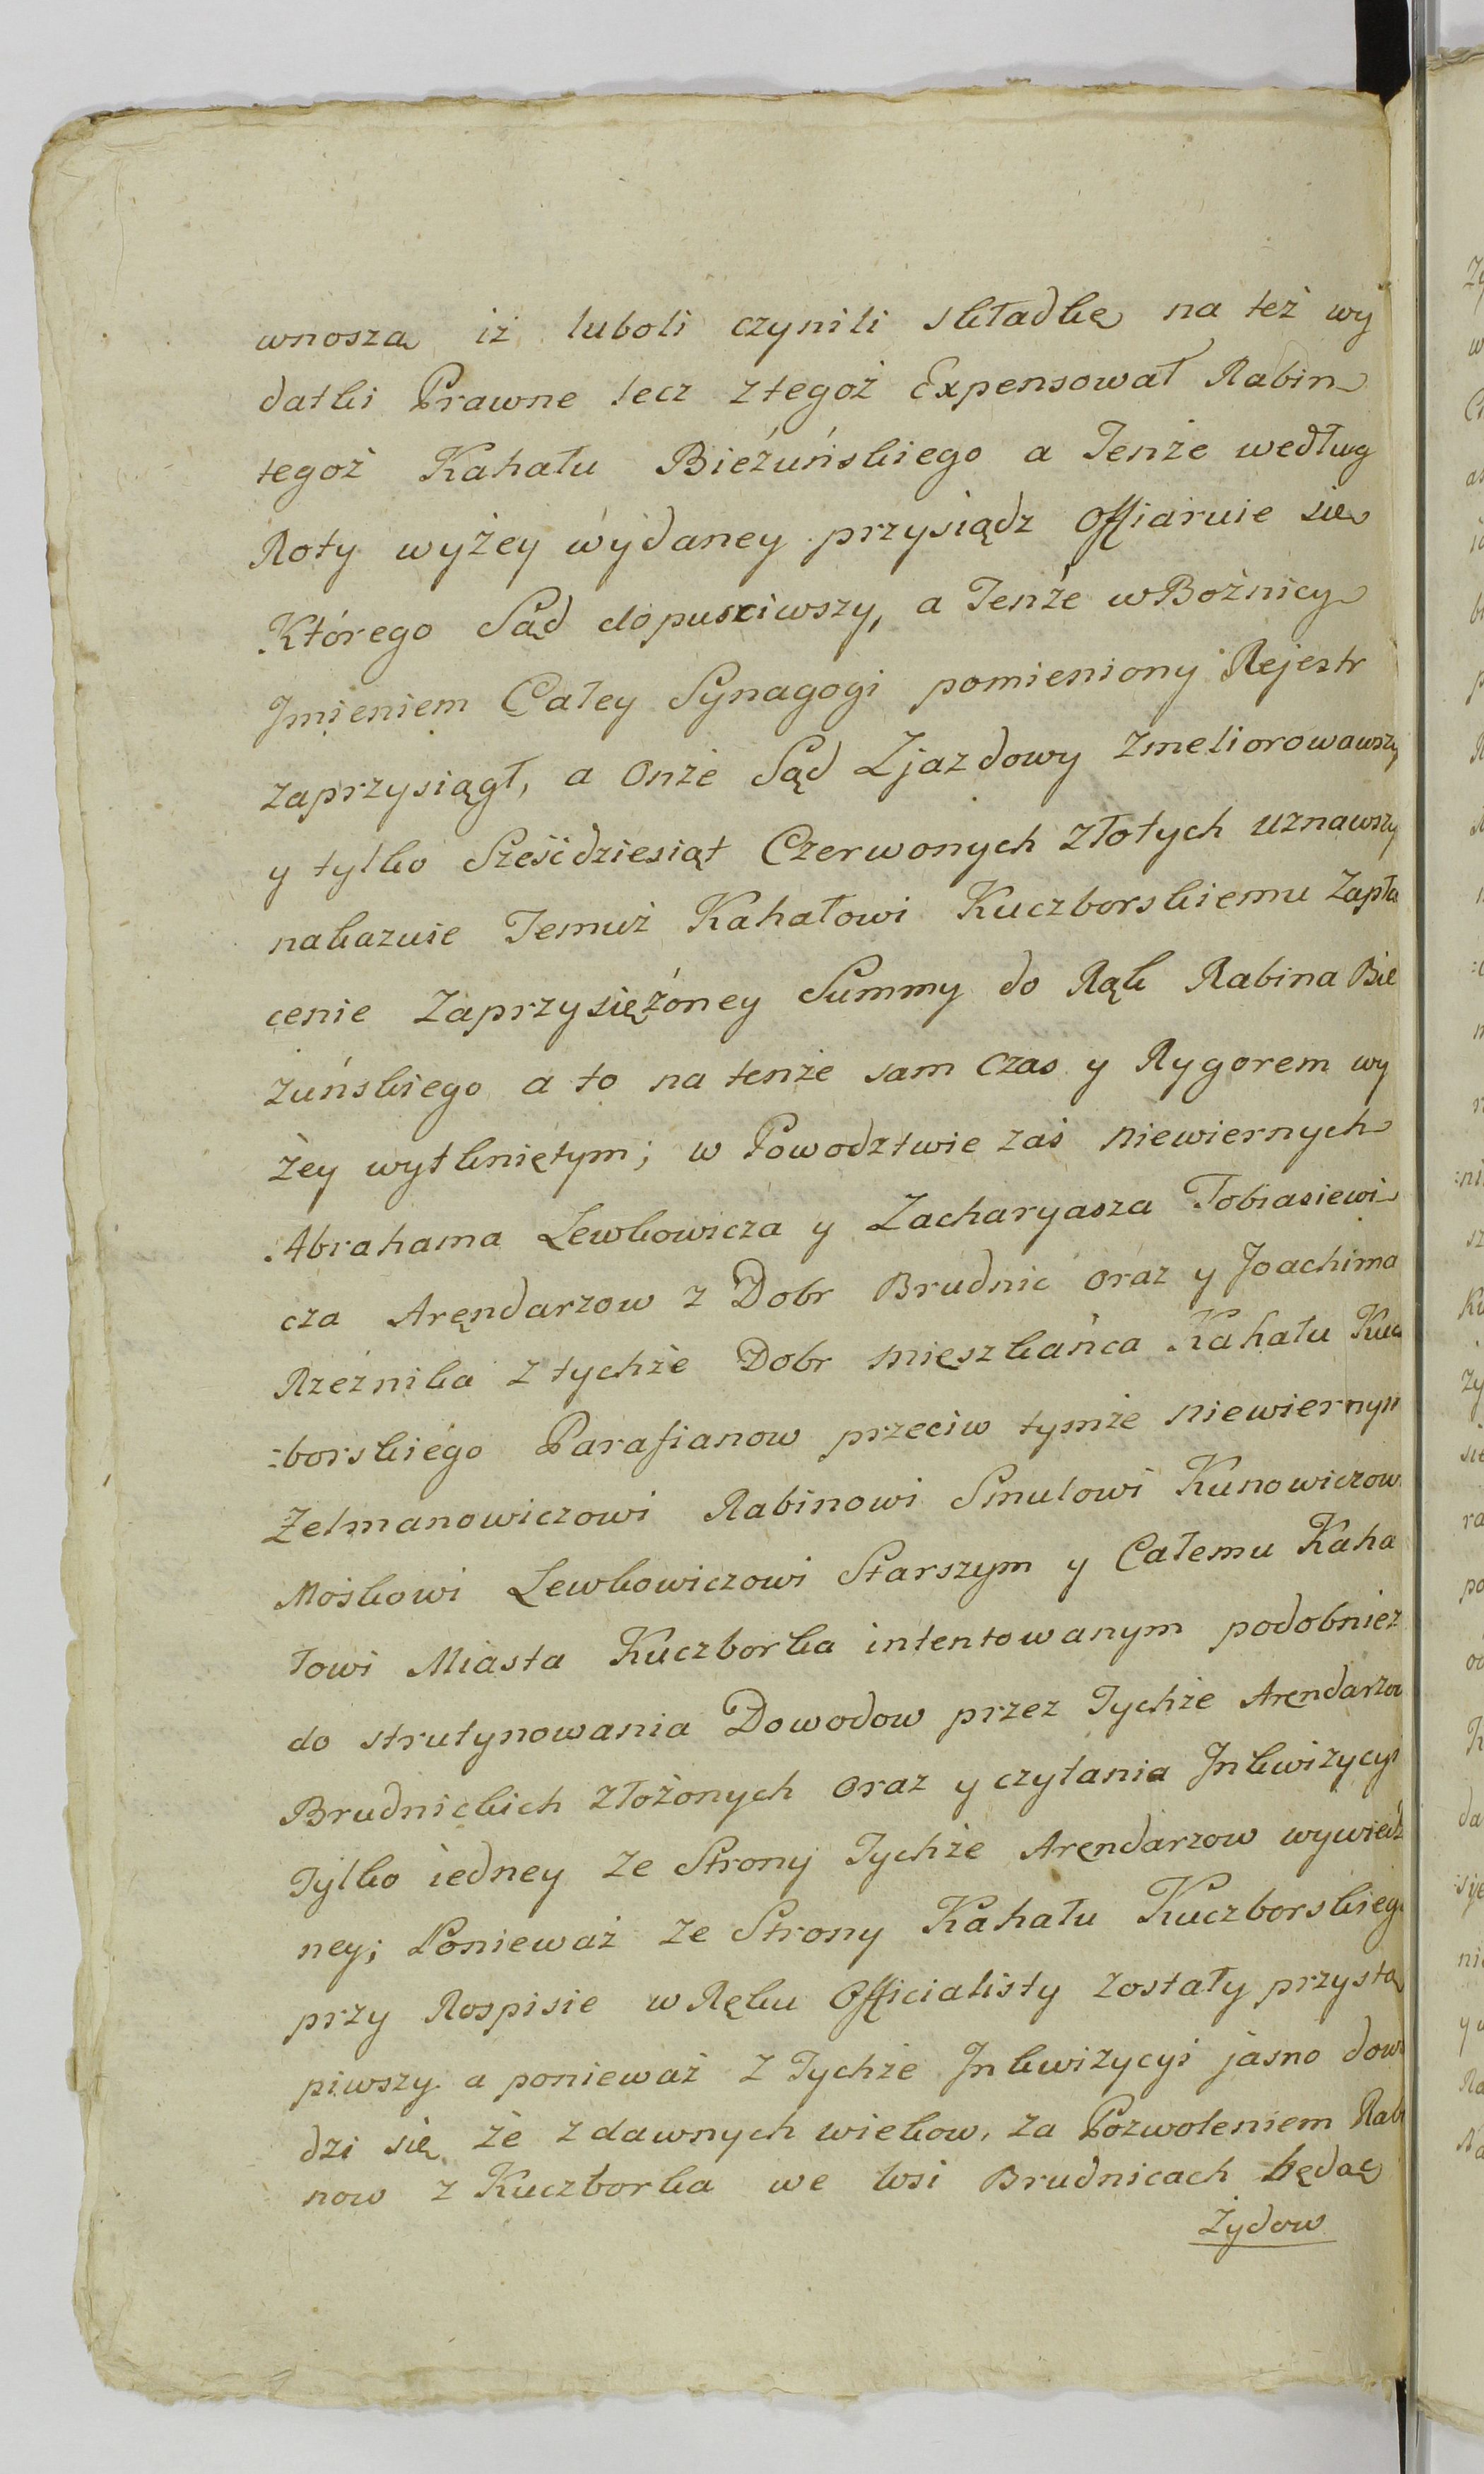 wnoszą iż luboli czynili składkę na też wy
datki Prawne lecz z tegoż Expensował Rabin
tegoż Kahału Bieżuńskiego a Tenże według
Roty wyżey wydaney przysiądz Offiaruie się
Którego Sąd dopusciwszy, a Tenże w Bożnicy
Jmieniem Całey Synagogi pomieniony Rejestr
zaprzysiągł, a Onże Sąd Zjazdowy zmeliorowawszy
y tylko Sześćdziesiąt Czerwonych złotych uznawszy
nakazuie Temuż Kahałowi Kuczborskiemu Zapła
cenie Zaprzysiężoney Summy do Rąk Rabina Bie
żuńskiego a to na tenże sam czas y Rygorem wy
żey wytkniętym; w Powodztwie zaś niewiernych
Abrahama Lewkowicza y Zacharyasza Tobiasiewi
cza Aręndarzow z Dobr Brudnic oraz y Joachima
Rzeźnika z tychże Dobr mieszkańca Kahału Kucz
:borskiego Parafianow przeciw tymże niewiernym
Zelmanowiczowi Rabinowi Smulowi Kunowiczowi
Mośkowi Lewkowiczowi Starszym y Całemu Kaha
łowi Miasta Kuczborka intentowanym podobnież
do strutynowania Dowodow przez Tychże Aręndarzow
Brudnickich złożonych oraz y czytania Jnkwizycyi
Tylko iedney ze Strony Tychże Aręndarzow wywiedz
ney; Ponieważ ze Strony Kahału Kuczborskiego
przy Rospisie w Ręku Officialisty zostały przystą
piwszy a ponieważ z Tychże Jnkwizycyi jasno dowo
dzi się, że z dawnych wiekow, za Pozwoleniem Rabi
now z Kuczborka we wsi Brudnicach będąc
Żydow